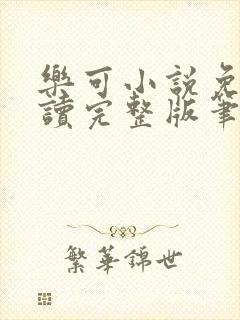 樂可小說免
讀完整版筆
繁華錦世